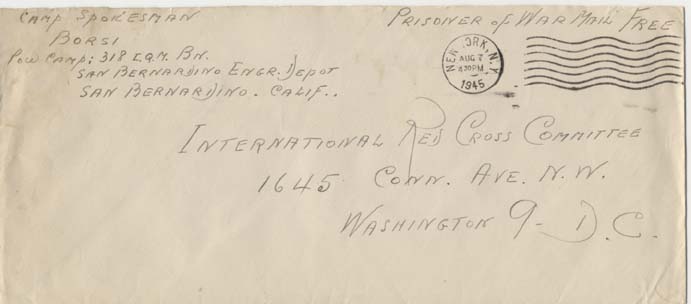 CAMP SPOKESMAN
BORSI
POW CAMP: 318 I.Q.M. BN.
SAN BERNARDINO ENGR. DEPOT
SAN BERNARDINO. CALIF..
PRISONER OF WAR MAIL FREE
NEW YORK, N.Y.
AUG 7
4 30 PM
1945
INTERNATIONAL RED CROSS COMMITTEE
1645 CONN. AVE. N.W.
WASHINGTON 9 - D.C.